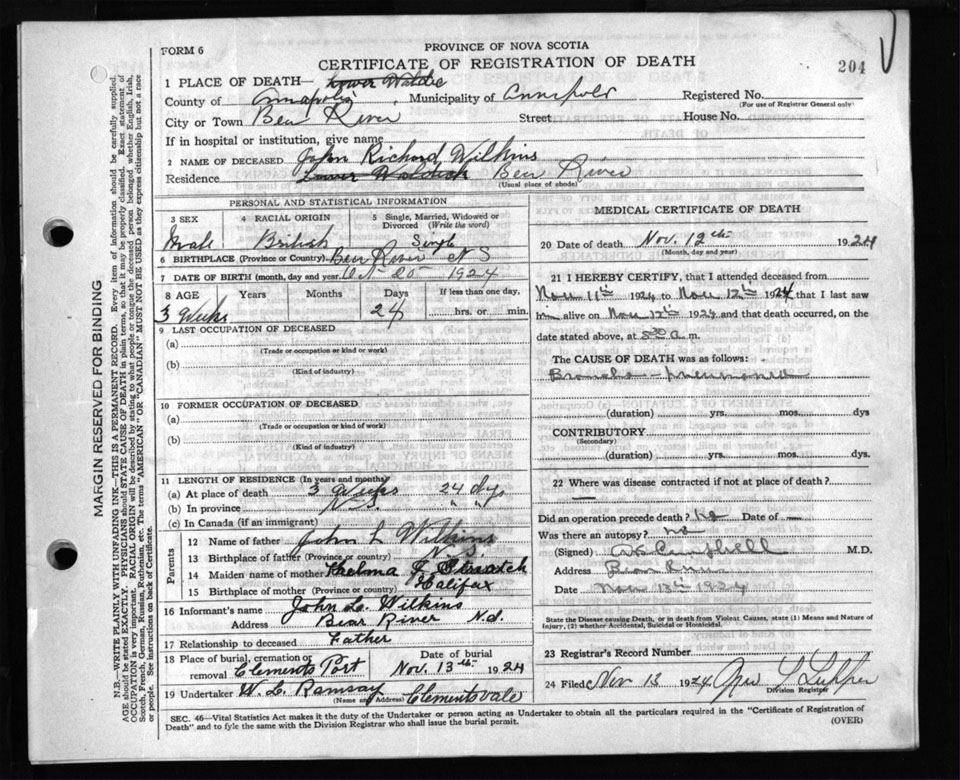 FORM 6
PROVINCE OF NOVA SCOTIA
CERTIFICATE OF REGISTRATION OF DEATH
204
1 PLACE OF DEATH— Lower
County of Annapolis, Municipality of Annapolis Registered No.
(For use of Registrar General only)
City or Town Bear River Street House No.
If in hospital or institution, give name
2 NAME OF DECEASED John Richard Wilkins
Residence Lower Bear River
(Usual place of abode)
MARGIN RESERVED FOR BINDING
N.B.—WRITE PLAINLY WITH UNFADING INK—THIS IS A PERMANENT RECORD. Every item of information should be carefully supplied.
AGE should be stated EXACTLY. PHYSICIANS should STATE CAUSE OF DEATH in plain terms, so that it may be properly classified. Exact statement of
OCCUPATION is very important. RACIAL ORIGIN will be described by stating to what people or tongue the deceased person belonged, whether English, Irish,
Scotch, French, German, Russian, Ruthenian, etc. The terms "AMERICAN" OR "CANADIAN" MUST NOT BE USED as they express citizenship but not a race
or people. See instructions on back of Certificate.
PERSONAL AND STATISTICAL INFORMATION
3 SEX 4 RACIAL ORIGIN 5 Single, Married, Widowed or
Divorced (Write the word)
Male British Single
6 BIRTHPLACE (Province or Country) Bear River N S
7 DATE OF BIRTH (month, day and year) Oct 20 1924
8 AGE Years Months Days If less than one day,
3 Weeks 24 hrs. or min.
9 LAST OCCUPATION OF DECEASED
(a)
(Trade or occupation or kind or work)
(b)
(Kind of industry)
10 FORMER OCCUPATION OF DECEASED
(a)
(Trade or occupation or kind or work)
(b)
(Kind of industry)
11 LENGTH OF RESIDENCE (In years and months)
(a) At place of death 3 Weeks 24 dys
(b) In province N.S. " "
(c) In Canada (if an immigrant)
Parents
12 Name of father John L Wilkins
13 Birthplace of father (Province or country) N.S.
14 Maiden name of mother Thelma F
15 Birthplace of mother (Province or country) Halifax
16 Informant's name John L. Wilkins
Address Bear River N.S.
17 Relationship to deceased Father
18 Place of burial, cremation or removal Clements Port Date of burial Nov. 13th 1924
19 Undertaker W. L. Ramsay Clementsvale
(Name and Address)
MEDICAL CERTIFICATE OF DEATH
20 Date of death Nov. 12th 1924
(Month, day and year)
21 I HEREBY CERTIFY, that I attended deceased from
Nov 11th 1924 to Nov 12th 1924 that I last saw
him alive on Nov 12th 1924 and that death occurred, on the
date stated above, at a.m.
The CAUSE OF DEATH was as follows:
Broncho-pneumonia
(duration) yrs. mos. dys
CONTRIBUTORY
(Secondary)
(duration) yrs. mos. dys.
22 Where was disease contracted if not at place of death?
—
Did an operation precede death? No Date of —
Was there an autopsy? no
(Signed) Campbell M.D.
Address Bear River
Date Nov 13th 1924
State the Disease Causing Death, or in death from Violent Causes, state (1) Means and Nature of
Injury, (2) whether Accidental, Suicidal or Homicidal.
23 Registrar's Record Number
24 Filed Nov 13 1924
Division Registrar
SEC. 46—Vital Statistics Act makes it the duty of the Undertaker or person acting as Undertaker to obtain all the particulars required in the "Certificate of Registration of
Death" and to fyle the same with the Division Registrar who shall issue the burial permit.
(OVER)